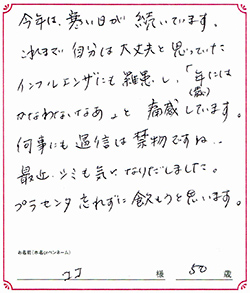 今年は、寒い日が続いています。
これまで自分は大丈夫と思っていた
インフルエンザにも罹患し、「年には
(歳)
かなわないなあ」と痛感しています。
何事にも過信は禁物ですね..
最近、シミも気になりだしました。
プラセンタ忘れずに飲もうと思います。
お名前(本名orペンネーム)
ココ 様 50歳